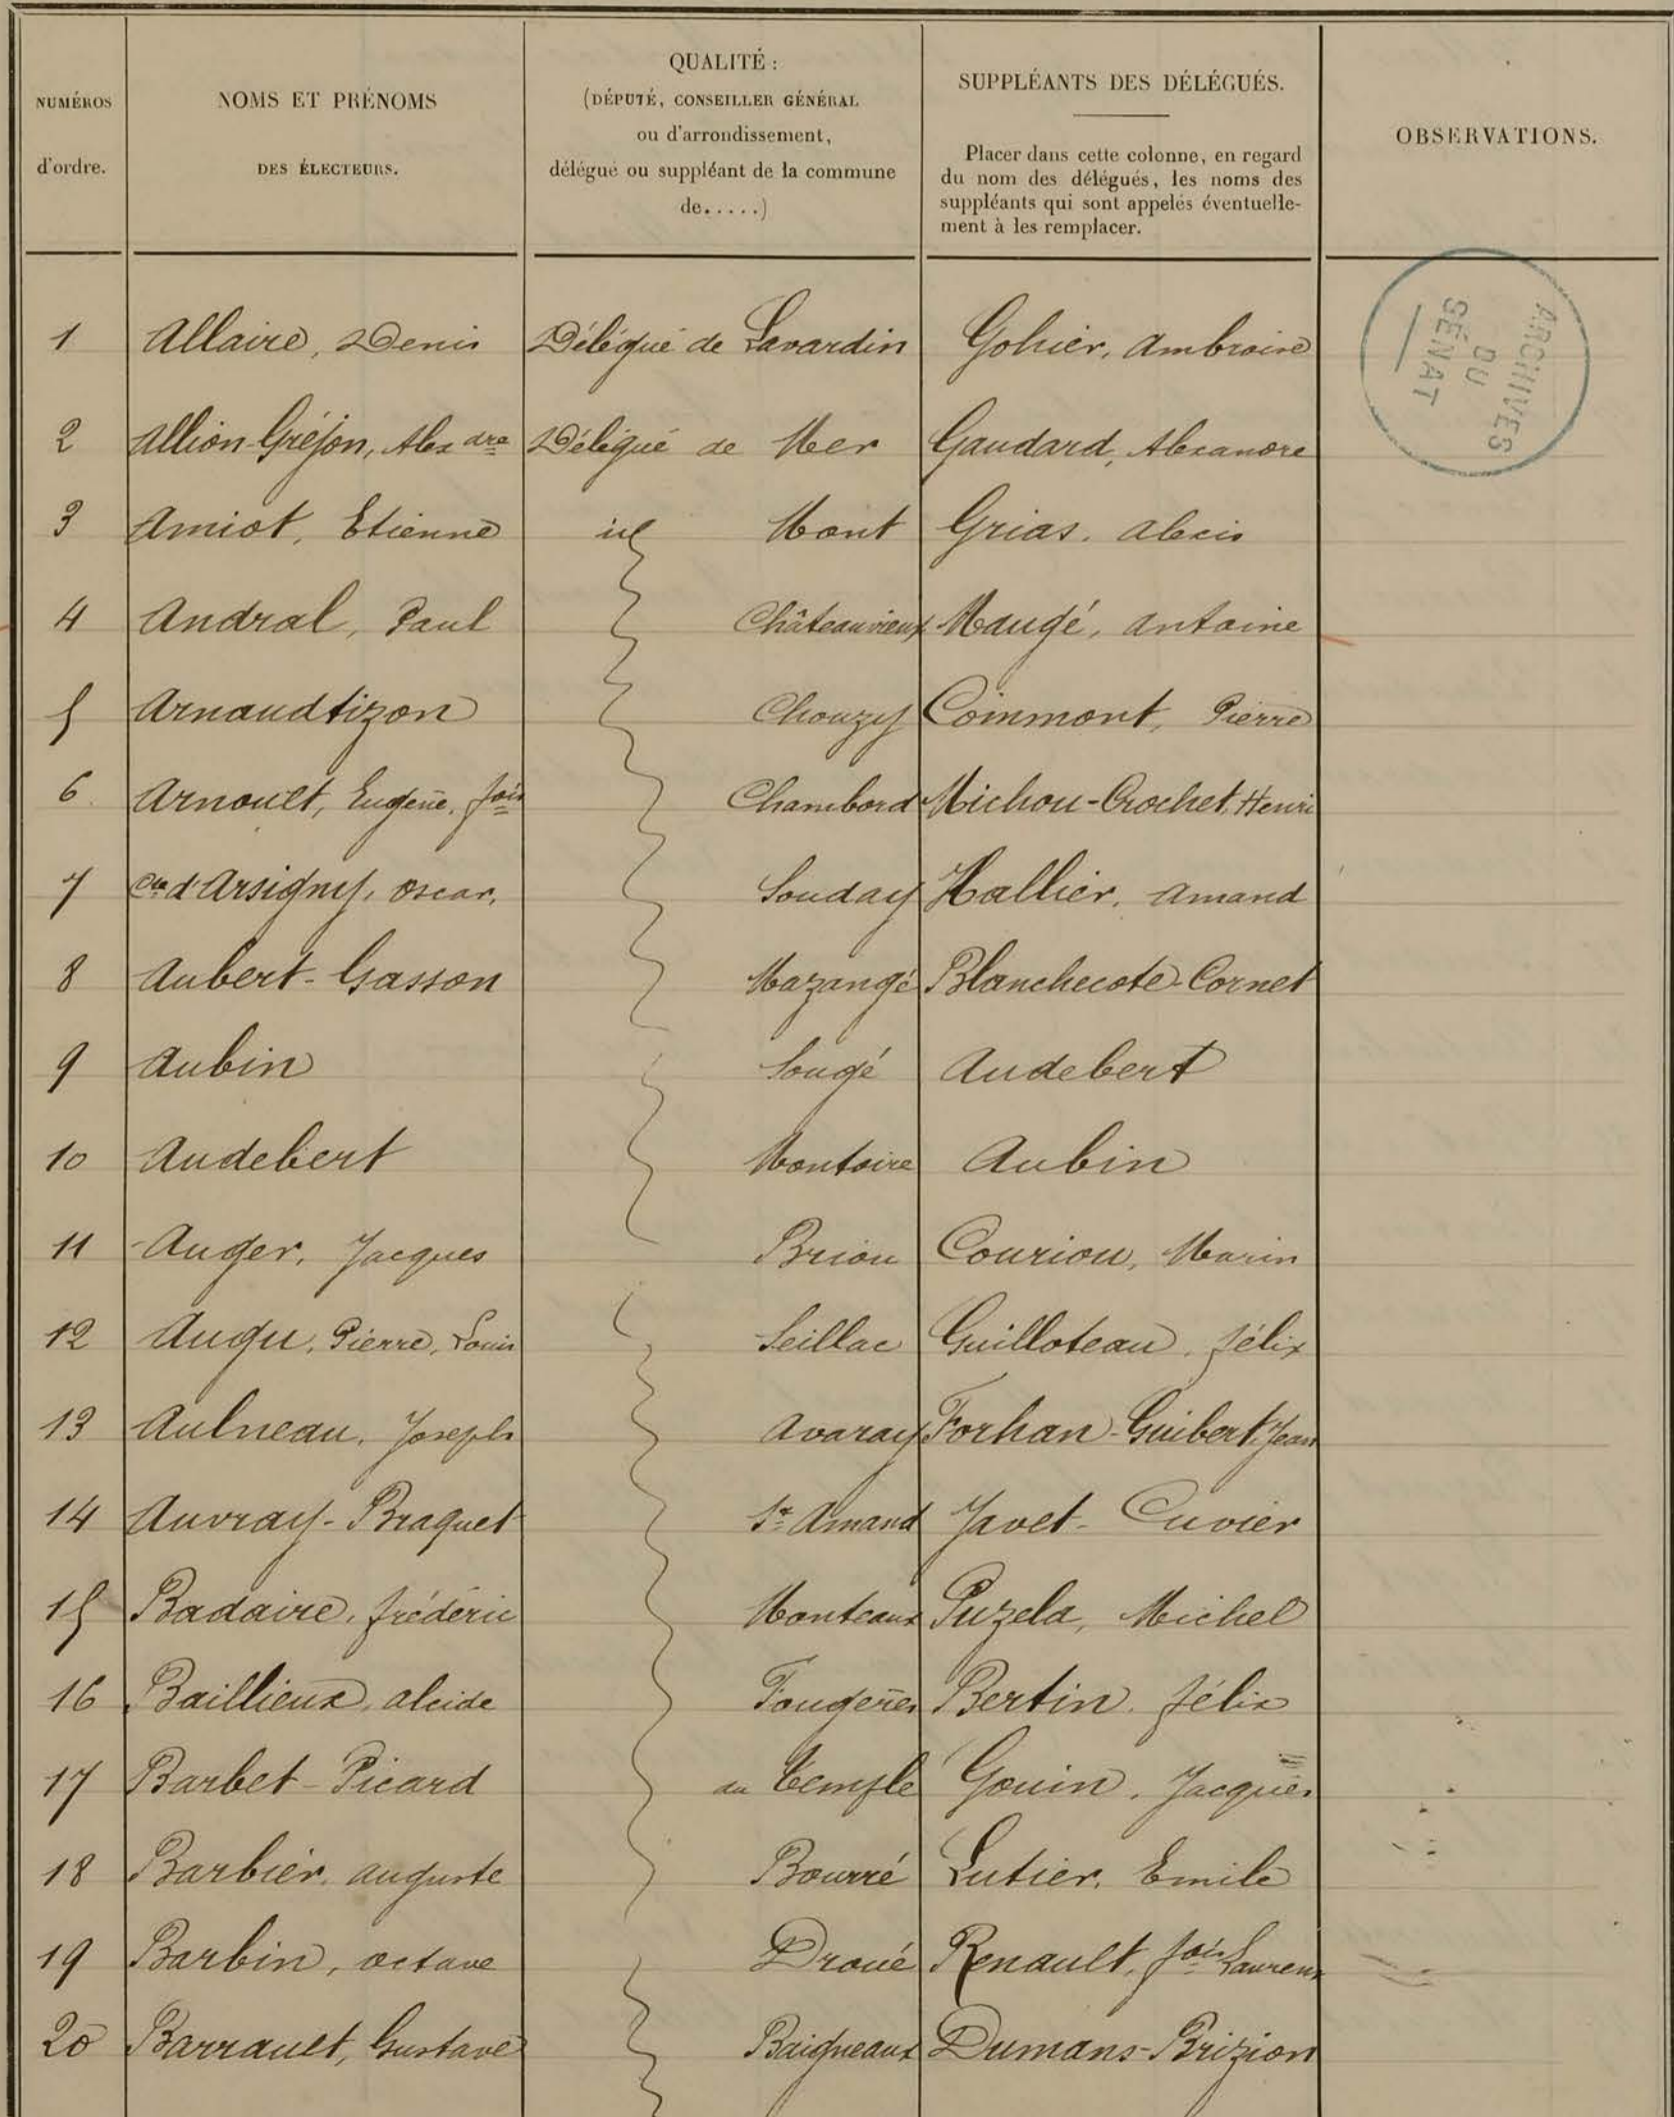 NUMÉROS
d'ordre.
NOMS ET PRÉNOMS
DES ÉLECTEURS.
QUALITÉ :
(DÉPUTÉ, CONSEILLER GÉNÉRAL
ou d'arrondissement,
délégué ou suppléant de la commune
de.....)
SUPPLÉANTS DES DÉLÉGUÉS.
Placer dans cette colonne, en regard
du nom des délégués, les noms des
suppléants qui sont appelés éventuelle-
ment à les remplacer.
OBSERVATIONS.
ARCHIVES
DU
SÉNAT
1 Allaire, Denis Délégué de Lavardin Gohier, Ambroise
2 Allion-Gréjon, Alexdre Délégué de Mer Gaudard, Alexandre
3 Amiot, Etienne id Mont Grias, Alexis
4 Andral, Paul Châteauvieux Maugé, Antoine
5 Arnaudtizon Chouzy Coinmont, Pierre
6 Arnoult, Eugène, fois Chambord Michou-Crochet, Henri
7 Cte d'Arsigny, Oscar, Souday Hallier, Amand
8 Aubert-Gasson Mazangé Blanchecote-Cornet
9 Aubin Sougé Audebert
10 Audebert Montoire Aubin
11 Auger, Jacques Briou Couriou, Marin
12 Augu, Pierre, Louis Seillac Guilloteau, félix
13 Aulneau, Joseph Avaray Forhan-Guibert, Jean
14 Auvray-Braquet St Amand Javet-Cuvier
15 Badaire, frédéric Monteaux Puzela, Michel
16 Baillieux, alcide Fougères Bertin, félix
17 Barbet-Picard au Temple Gouin, Jacques
18 Barbier, auguste Bourré Lutier, Emile
19 Barbin, octave Droué Renault, fois Laurent
20 Barrault, Gustave Baigneaux Dumans-Brizion